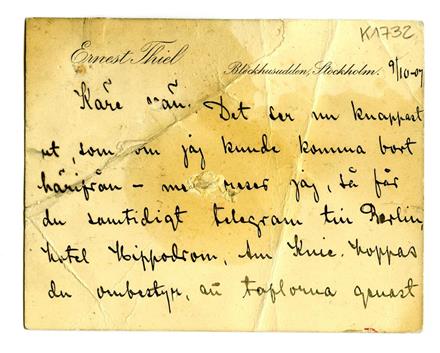 K1732
Ernest Thiel
Blockhusudden, Stockholm. 9/10-07
Käre Det ser nu knappast
ut, som om jag kunde komma bort
härifrån – reser jag, så får
du samtidigt telegram till Berlin,
Hotel Hippodrom, Am Knie. Hoppas
du ombestyr, att taflorna genast